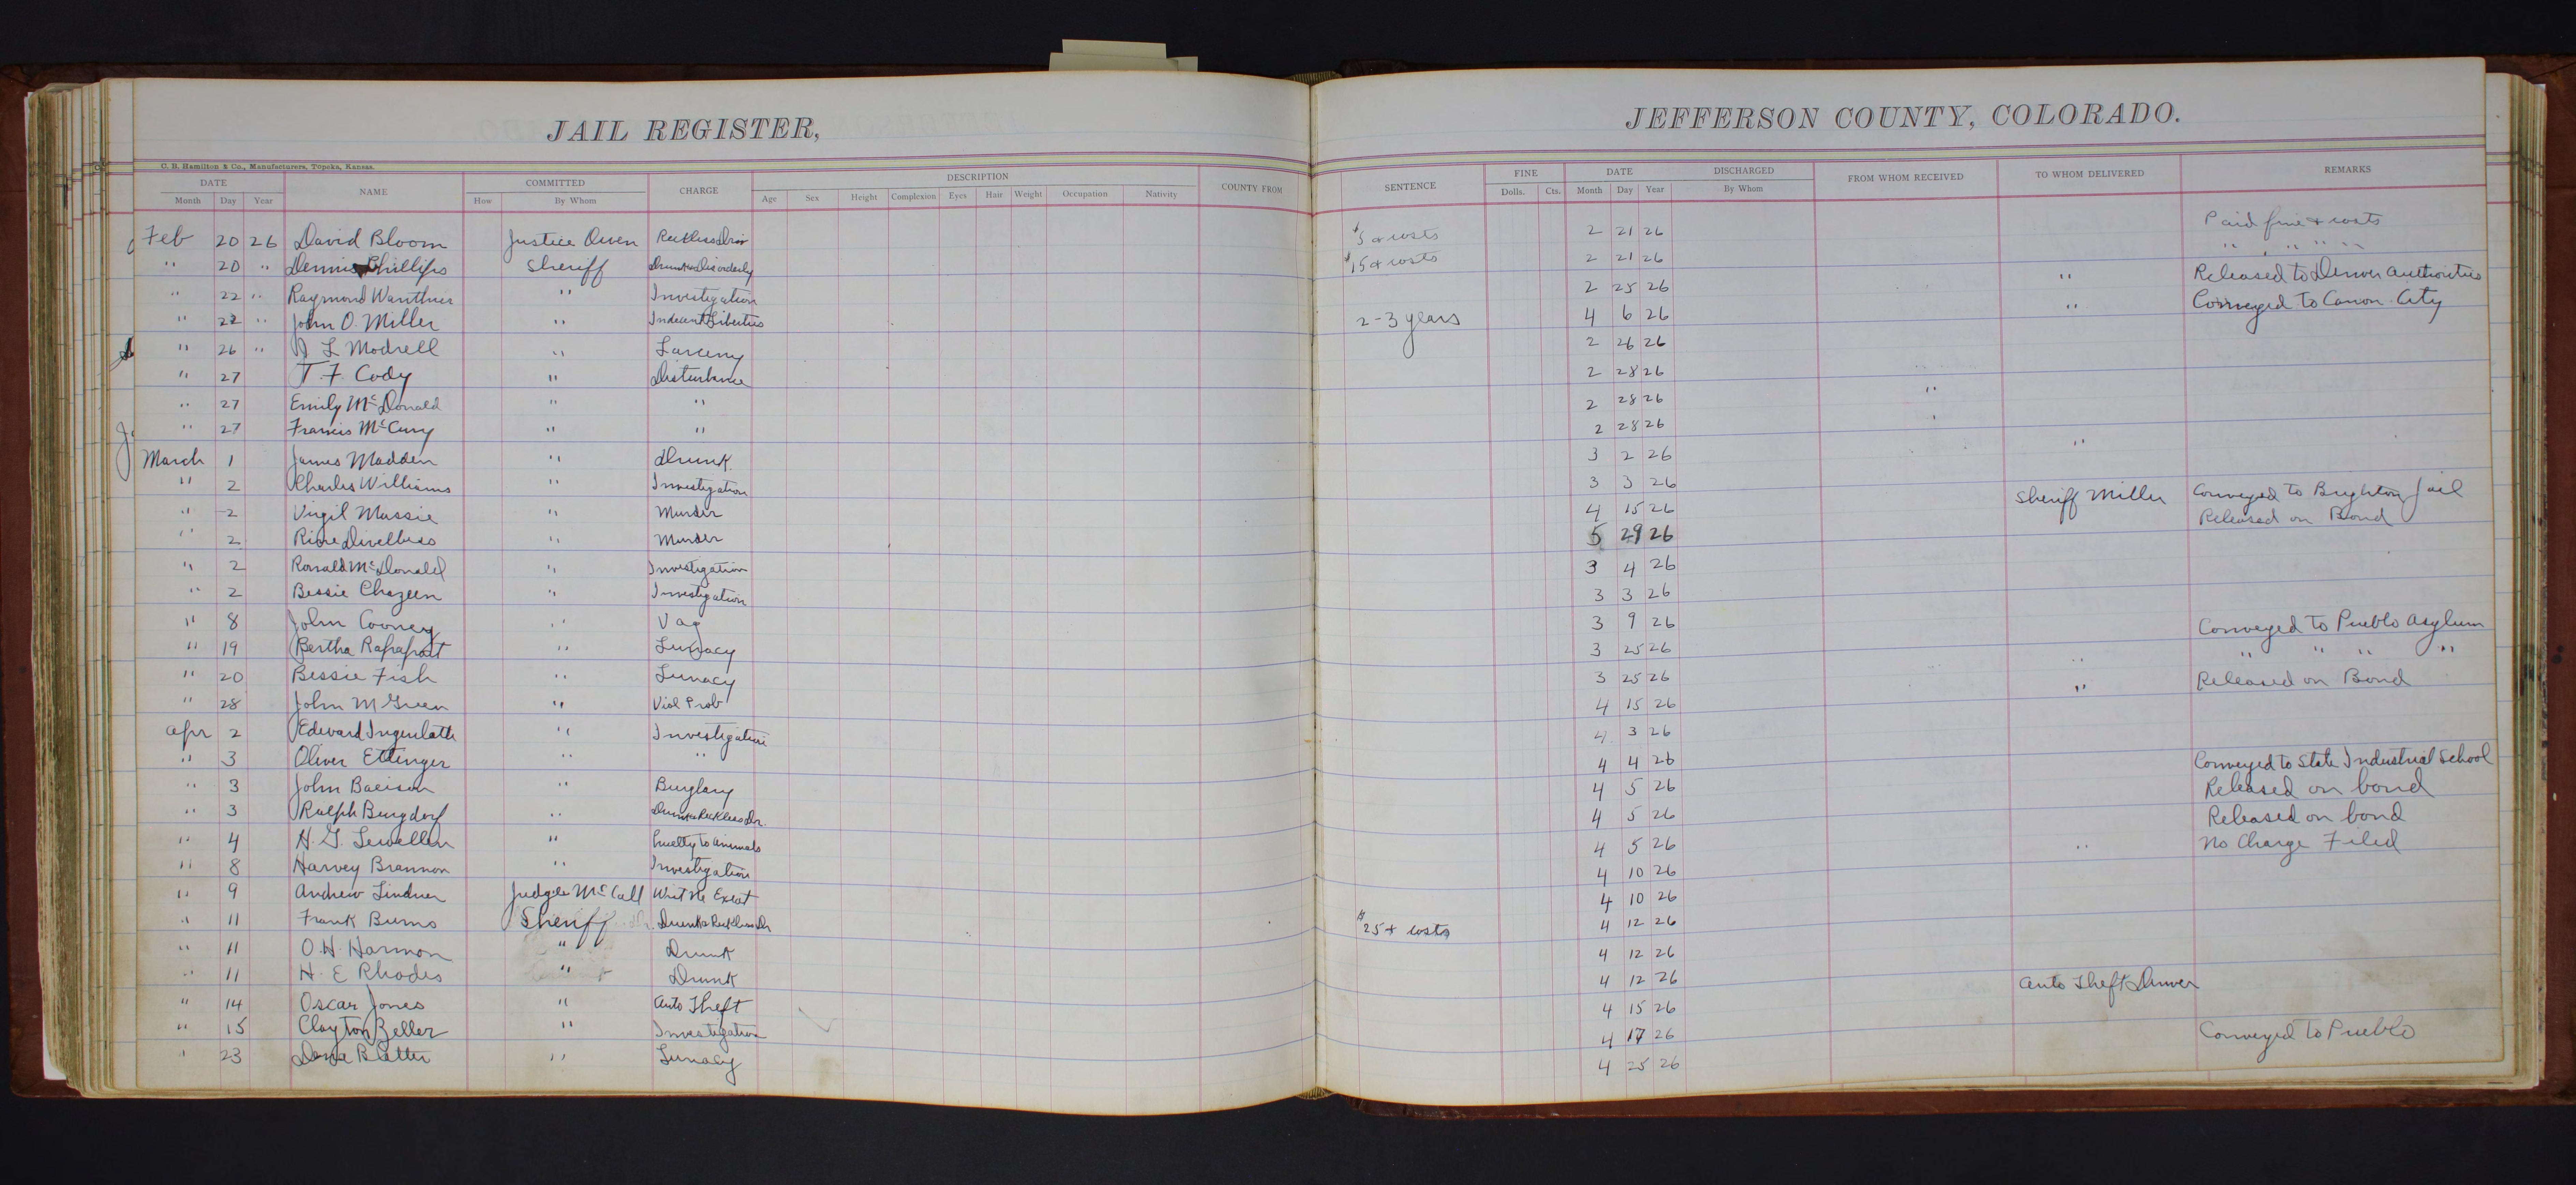 JAIL REGISTER, JEFFERSON COUNTY, COLORADO.
C. B. Hamilton & Co., Manufacturers, Topeka, Kansas.
DATE NAME COMMITTED CHARGE DESCRIPTION COUNTY FROM SENTENCE FINE DATE DISCHARGED FROM WHOM RECEIVED TO WHOM DELIVERED REMARKS
Month Day Year How By Whom Age Sex Height Complexion Eyes Hair Weight Occupation Nativity Dolls. Cts. Month Day Year By Whom
Feb 20 26 David Bloom Justice Owen Reckless Driv $5 & costs 2 21 26 Paid fine & costs
" 20 " Dennis Phillips Sheriff Drunk & Disorderly $15 & costs 2 21 26 " " " "
" 22 " Raymond " Investigation 2 25 26 " Released to Denver Authorities
" 22 " John O. Miller " Indecent Liberties 2-3 years 4 6 26 " Conveyed to Canon City
" 26 " J L Modrell " Larceny 2 26 26
" 27 T. F. Cody " Disturbance 2 28 26
" 27 Emily McDonald " " 2 28 26 "
" 27 Francis McCury " " 2 28 26
March 1 James Madden " Drunk 3 2 26 "
" 2 Charles Williams " Investigation 3 3 26
" 2 Virgil Massie " Murder 4 15 26 Sheriff Miller Conveyed to Brighton Jail
" 2 " Murder 5 29 26 Released on Bond
" 2 Ronald McDonald " Investigation 3 4 26
" 2 Bessie Chazeen " Investigation 3 3 26
" 8 John Cooney " Vag 3 9 26
" 19 Bertha Rapaport " Lunacy 3 25 26 Conveyed to Pueblo Asylum
" 20 Bessie Fish " Lunacy 3 25 26 " " " " "
" 28 John M Green " Viol Prob 4 15 26 " Released on Bond
Apr 2 Edward " Investigation 4 3 26
" 3 Oliver Ettinger " " 4 4 26
" 3 John " Burglary 4 5 26 Conveyed to State Industrial School
" 3 Ralph Burgdorf " Drunk & Reckless Dr. 4 5 26 Released on bond
" 4 H. G. Lewellen " Cruelty to animals 4 5 26 Released on bond
" 8 Harvey Brannon " Investigation 4 10 26 " No Charge Filed
" 9 Andrew Lindner Judge McCall Writ Ne Exeat 4 10 26
" 11 Frank Burns Sheriff Drunk & Reckless Dr $25 & costs 4 12 26
" 11 O. H. Harmon " Drunk 4 12 26
" 11 H. E Rhodes " Drunk 4 12 26
" 14 Oscar Jones " Auto Theft 4 15 26 Auto Theft Denver
" 15 Clayton Zeller " Investigation 4 17 26
" 23 " Lunacy 4 25 26 Conveyed to Pueblo